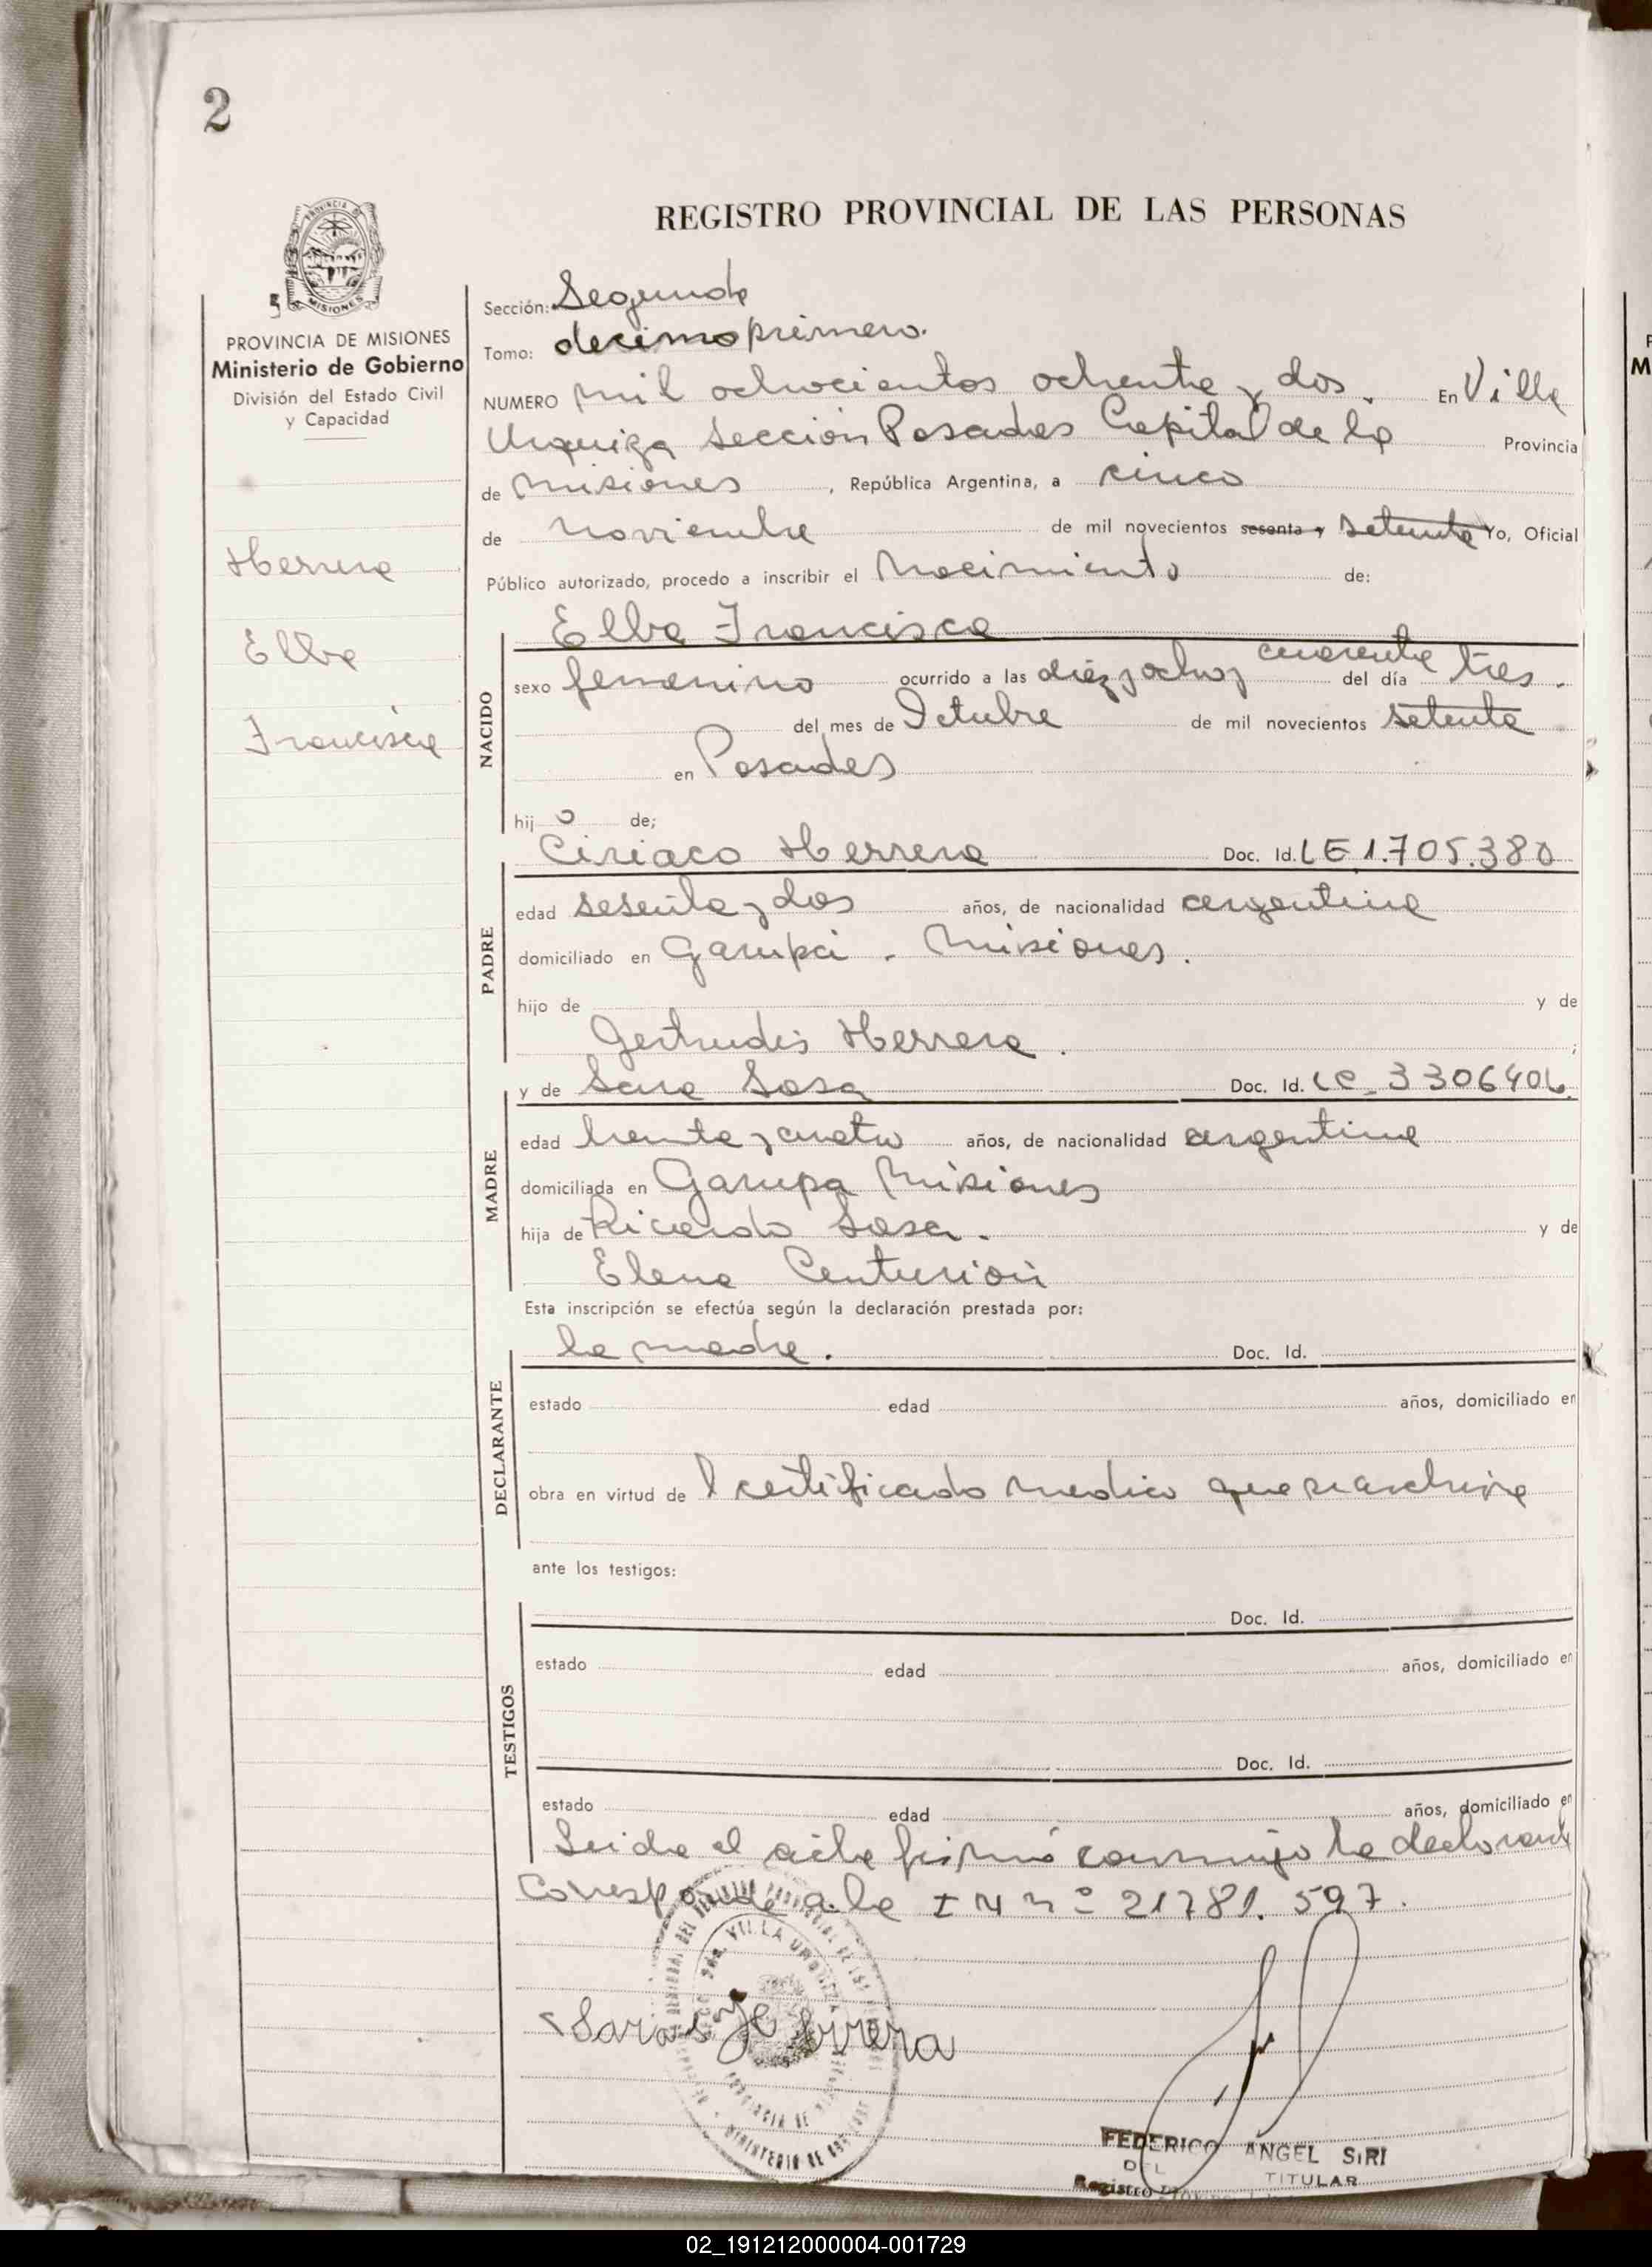 2
REGISTRO PROVINCIAL DE LAS PERSONAS
PROVINCIA DE MISIONES
PROVINCIA DE MISIONES
Ministerio de Gobierno
División del Estado Civil
y Capacidad
Herrera
Elba
Francisca
Sección: Segunda
Tomo: decimo primero.
NUMERO mil ochocientos ochenta y dos. En Villa
Urquiza Sección Posadas Capital de la Provincia
de Misiones, República Argentina, a cinco
de noviembre de mil novecientos sesenta y setenta Yo, Oficial
Público autorizado, procedo a inscribir el Nacimiento de:
Elba Francisca
NACIDO
sexo femenino ocurrido a las diez y ocho y cuarenta del día tres.
del mes de Octubre de mil novecientos setenta
en Posadas
hij o de;
Ciriaco Herrera Doc. Id. LE 1.705.380
PADRE
edad sesenta y dos años, de nacionalidad argentina
domiciliado en Garupá. Misiones.
hijo de y de
Gertrudis Herrera. ;
y de Sara Sosa Doc. Id. LC. 3306406
MADRE
edad treinta y cuatro años, de nacionalidad argentina
domiciliada en Garupa Misiones
hija de Ricardo Sosa. y de
Elena Centurión
Esta inscripción se efectúa según la declaración prestada por:
la madre. Doc. Id.
DECLARANTE
estado edad años, domiciliado en
obra en virtud de l certificado medico que se archiva
ante los testigos:
Doc. Id.
TESTIGOS
estado edad años, domiciliado en
Doc. Id.
estado edad años, domiciliado en
Leida el acta firmó conmigo la declarante
Corresponde a la I N nº 21781.597.
VILLA URQUIZA
Sara S de Herrera
FEDERICO ANGEL SIRI
TITULAR
DEL
Registro
02_191212000004-001729